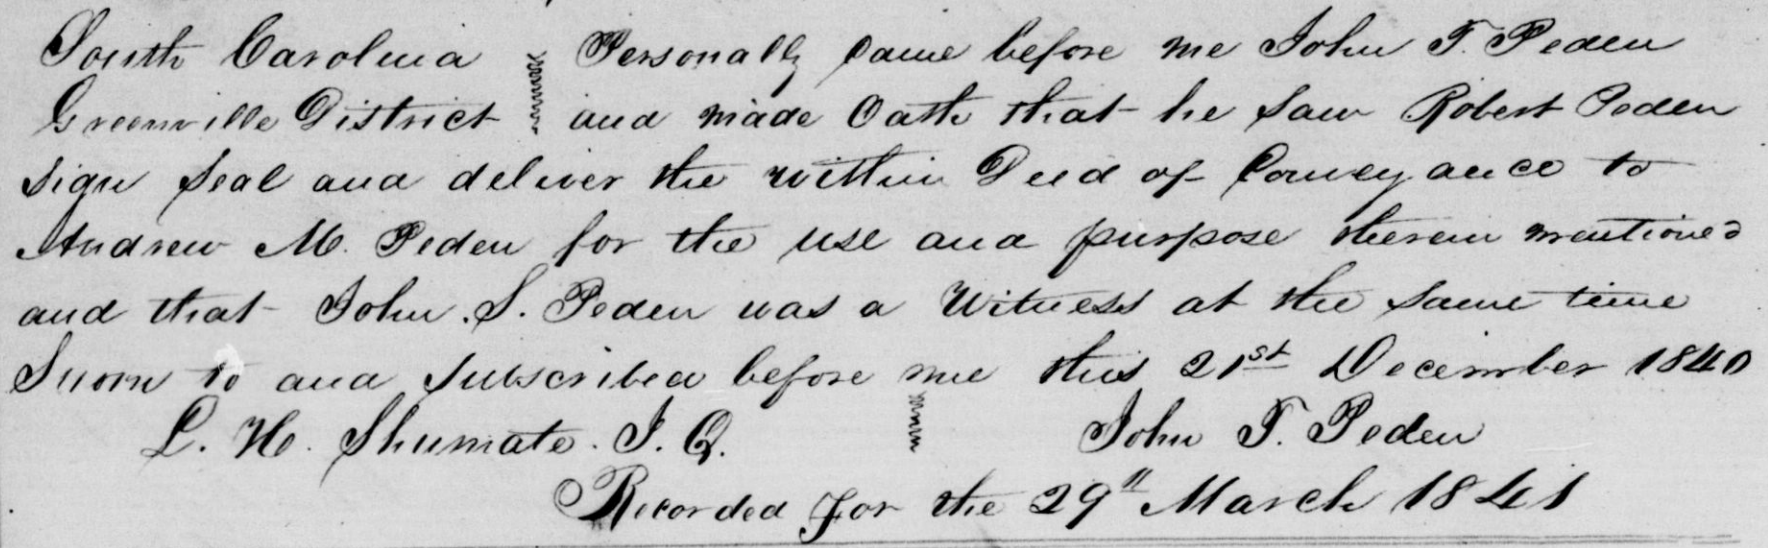 South Carolina } Personally came before me John T. Peden
Greenville District } and made Oath that he saw Robert Peden
sign seal and deliver the within Deed of Conveyance to
Andrew M. Peden for the use and purpose therein mentioned
and that John S. Peden was a Witness at the same time
Sworn to and subscribed before me this 21st December 1840
L. H. Shumate. J. Q. } John T. Peden
Recorded for the 29th March 1841